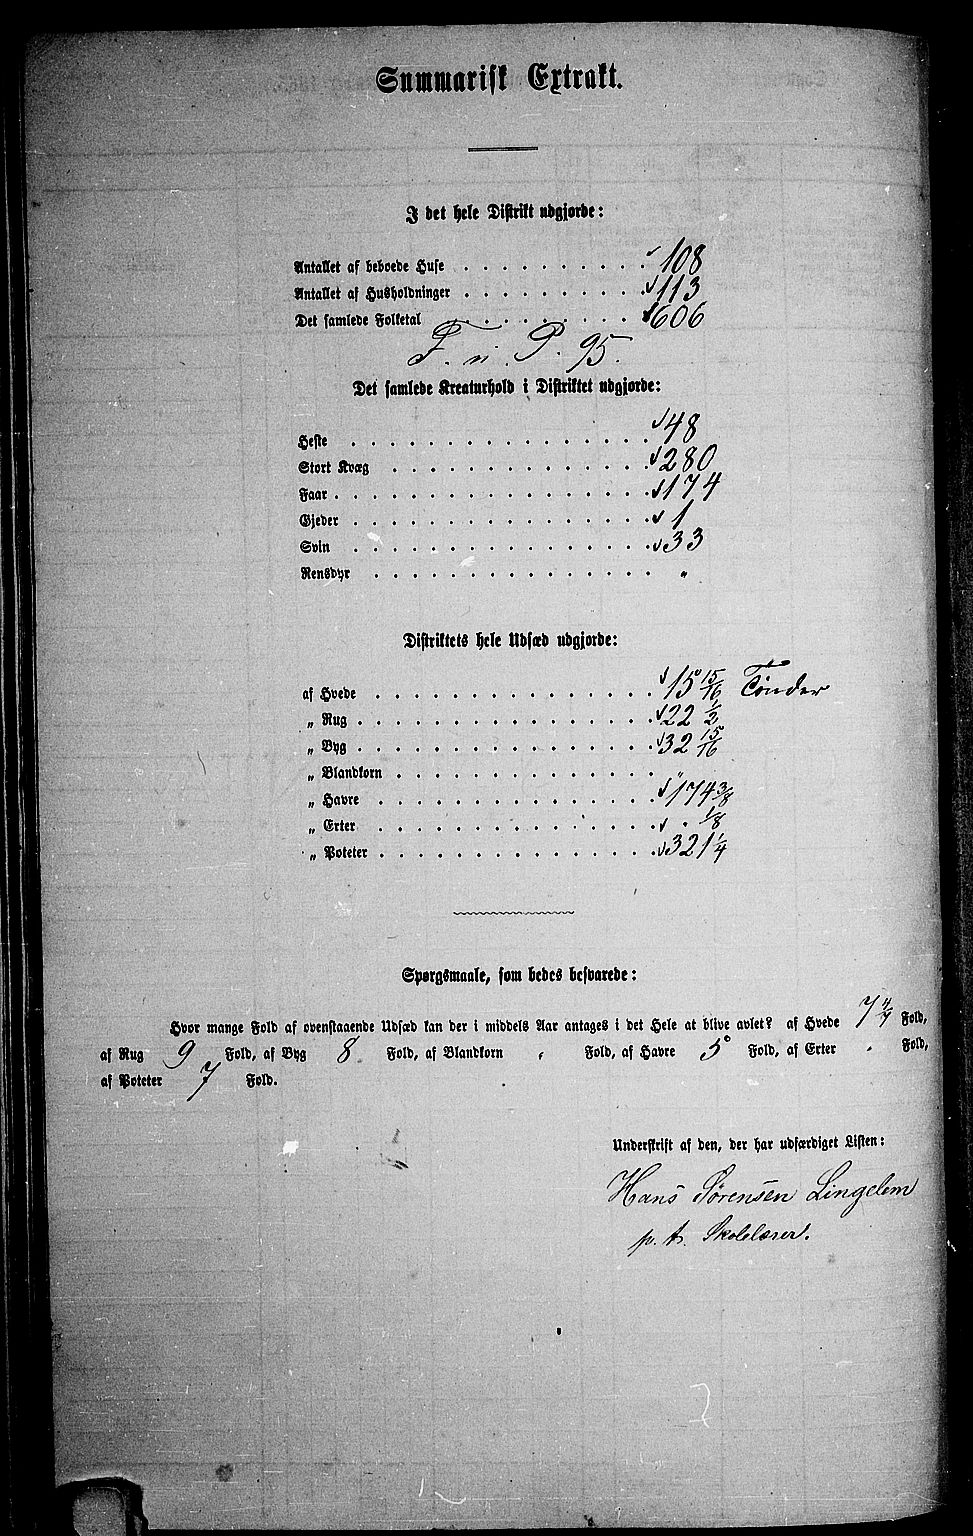 Summarisk Extrakt.
I det hele Distrikt udgjorde:
Antallet af beboede Huse . . . . . . . . . . 108
Antallet af Husholdninger . . . . . . . . . . 113
Det samlede Folketal . . . . . . . . . . 606
F. n. P. 95.
Det samlede Kreaturhold i Distriktet udgjorde:
Heste . . . . . . . . . . . . . . . . 48
Stort Kvæg . . . . . . . . . . . . . . 280
Faar . . . . . . . . . . . . . . . . . 174
Gjeder . . . . . . . . . . . . . . . . 1
Svin . . . . . . . . . . . . . . . . 33
Rensdyr . . . . . . . . . . . . . . . "
Distriktets hele Udsæd udgjorde:
af Hvede . . . . . . . . . . . . . . . 15 15/16 Tønder
„ Rug . . . . . . . . . . . . . . . . 22 1/2
„ Byg . . . . . . . . . . . . . . . . 32 15/16
„ Blandkorn . . . . . . . . . . . . . "
„ Havre . . . . . . . . . . . . . . . 174 3/8
„ Erter . . . . . . . . . . . . . . . 1/8
„ Poteter . . . . . . . . . . . . . . 321 1/4
Spørgsmaale, som bedes besvarede:
Hvor mange Fold af ovenstaaende Udsæd kan der i middels Aar antages i det Hele at blive avlet? af Hvede 7 4/7 Fold,
af Rug 9 Fold, af Byg 8 Fold, af Blandkorn " Fold, af Havre 5 Fold, af Erter " Fold,
af Poteter 7 Fold.
Underskrift af den, der har udfærdiget Listen:
Hans Sørensen Lingelem
p. t. Skolelærer.